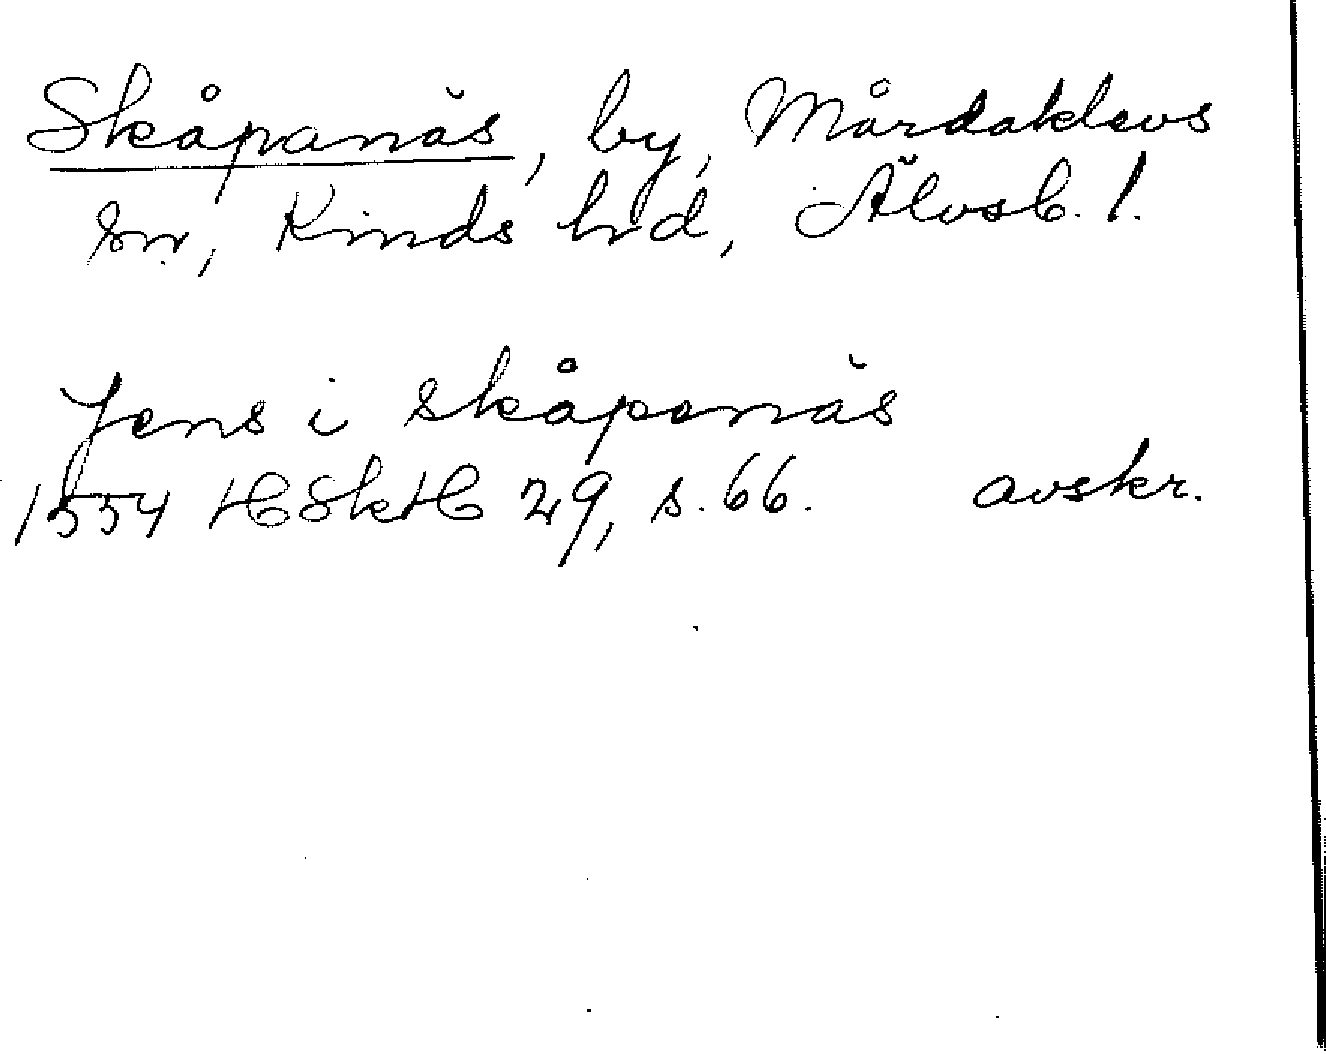 Skåpanäs, by, Mårdaklevs
sn, Kinds hd, Älvsb. l.
Jens i skåpenäs
1554 HSkH 29, s. 66. avskr.